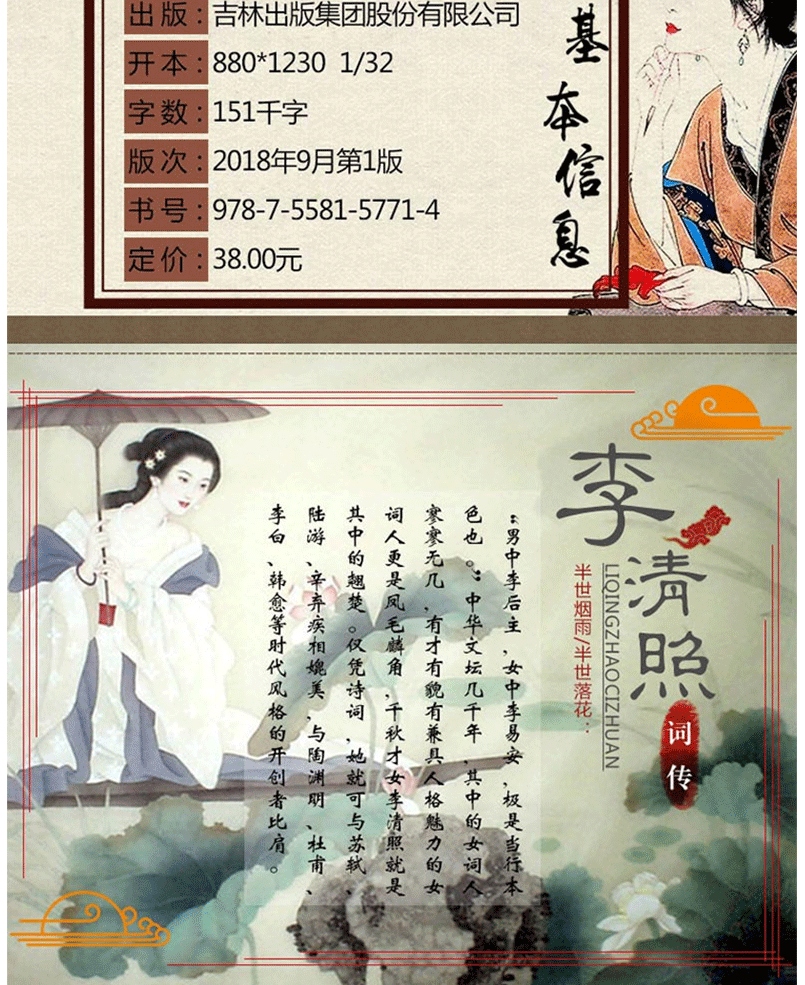 出版：吉林出版集团股份有限公司
开本：880*1230 1/32
字数：151千字
版次：2018年9月第1版
书号：978-7-5581-5771-4
定价：38.00元
基本信息
李清照
词传
LIQINGZHAOCIZHUAN
半世烟雨/半世落花：
“男中李后主，女中李易安，极是当行本
色也。”中华文坛几千年，其中的女词人
寥寥无几，有才有貌有兼具人格魅力的女
词人更是凤毛麟角，千秋才女李清照就是
其中的翘楚。仅凭诗词，她就可与苏轼、
陆游、辛弃疾相媲美，与陶渊明、杜甫、
李白、韩愈等时代风格的开创者比肩。